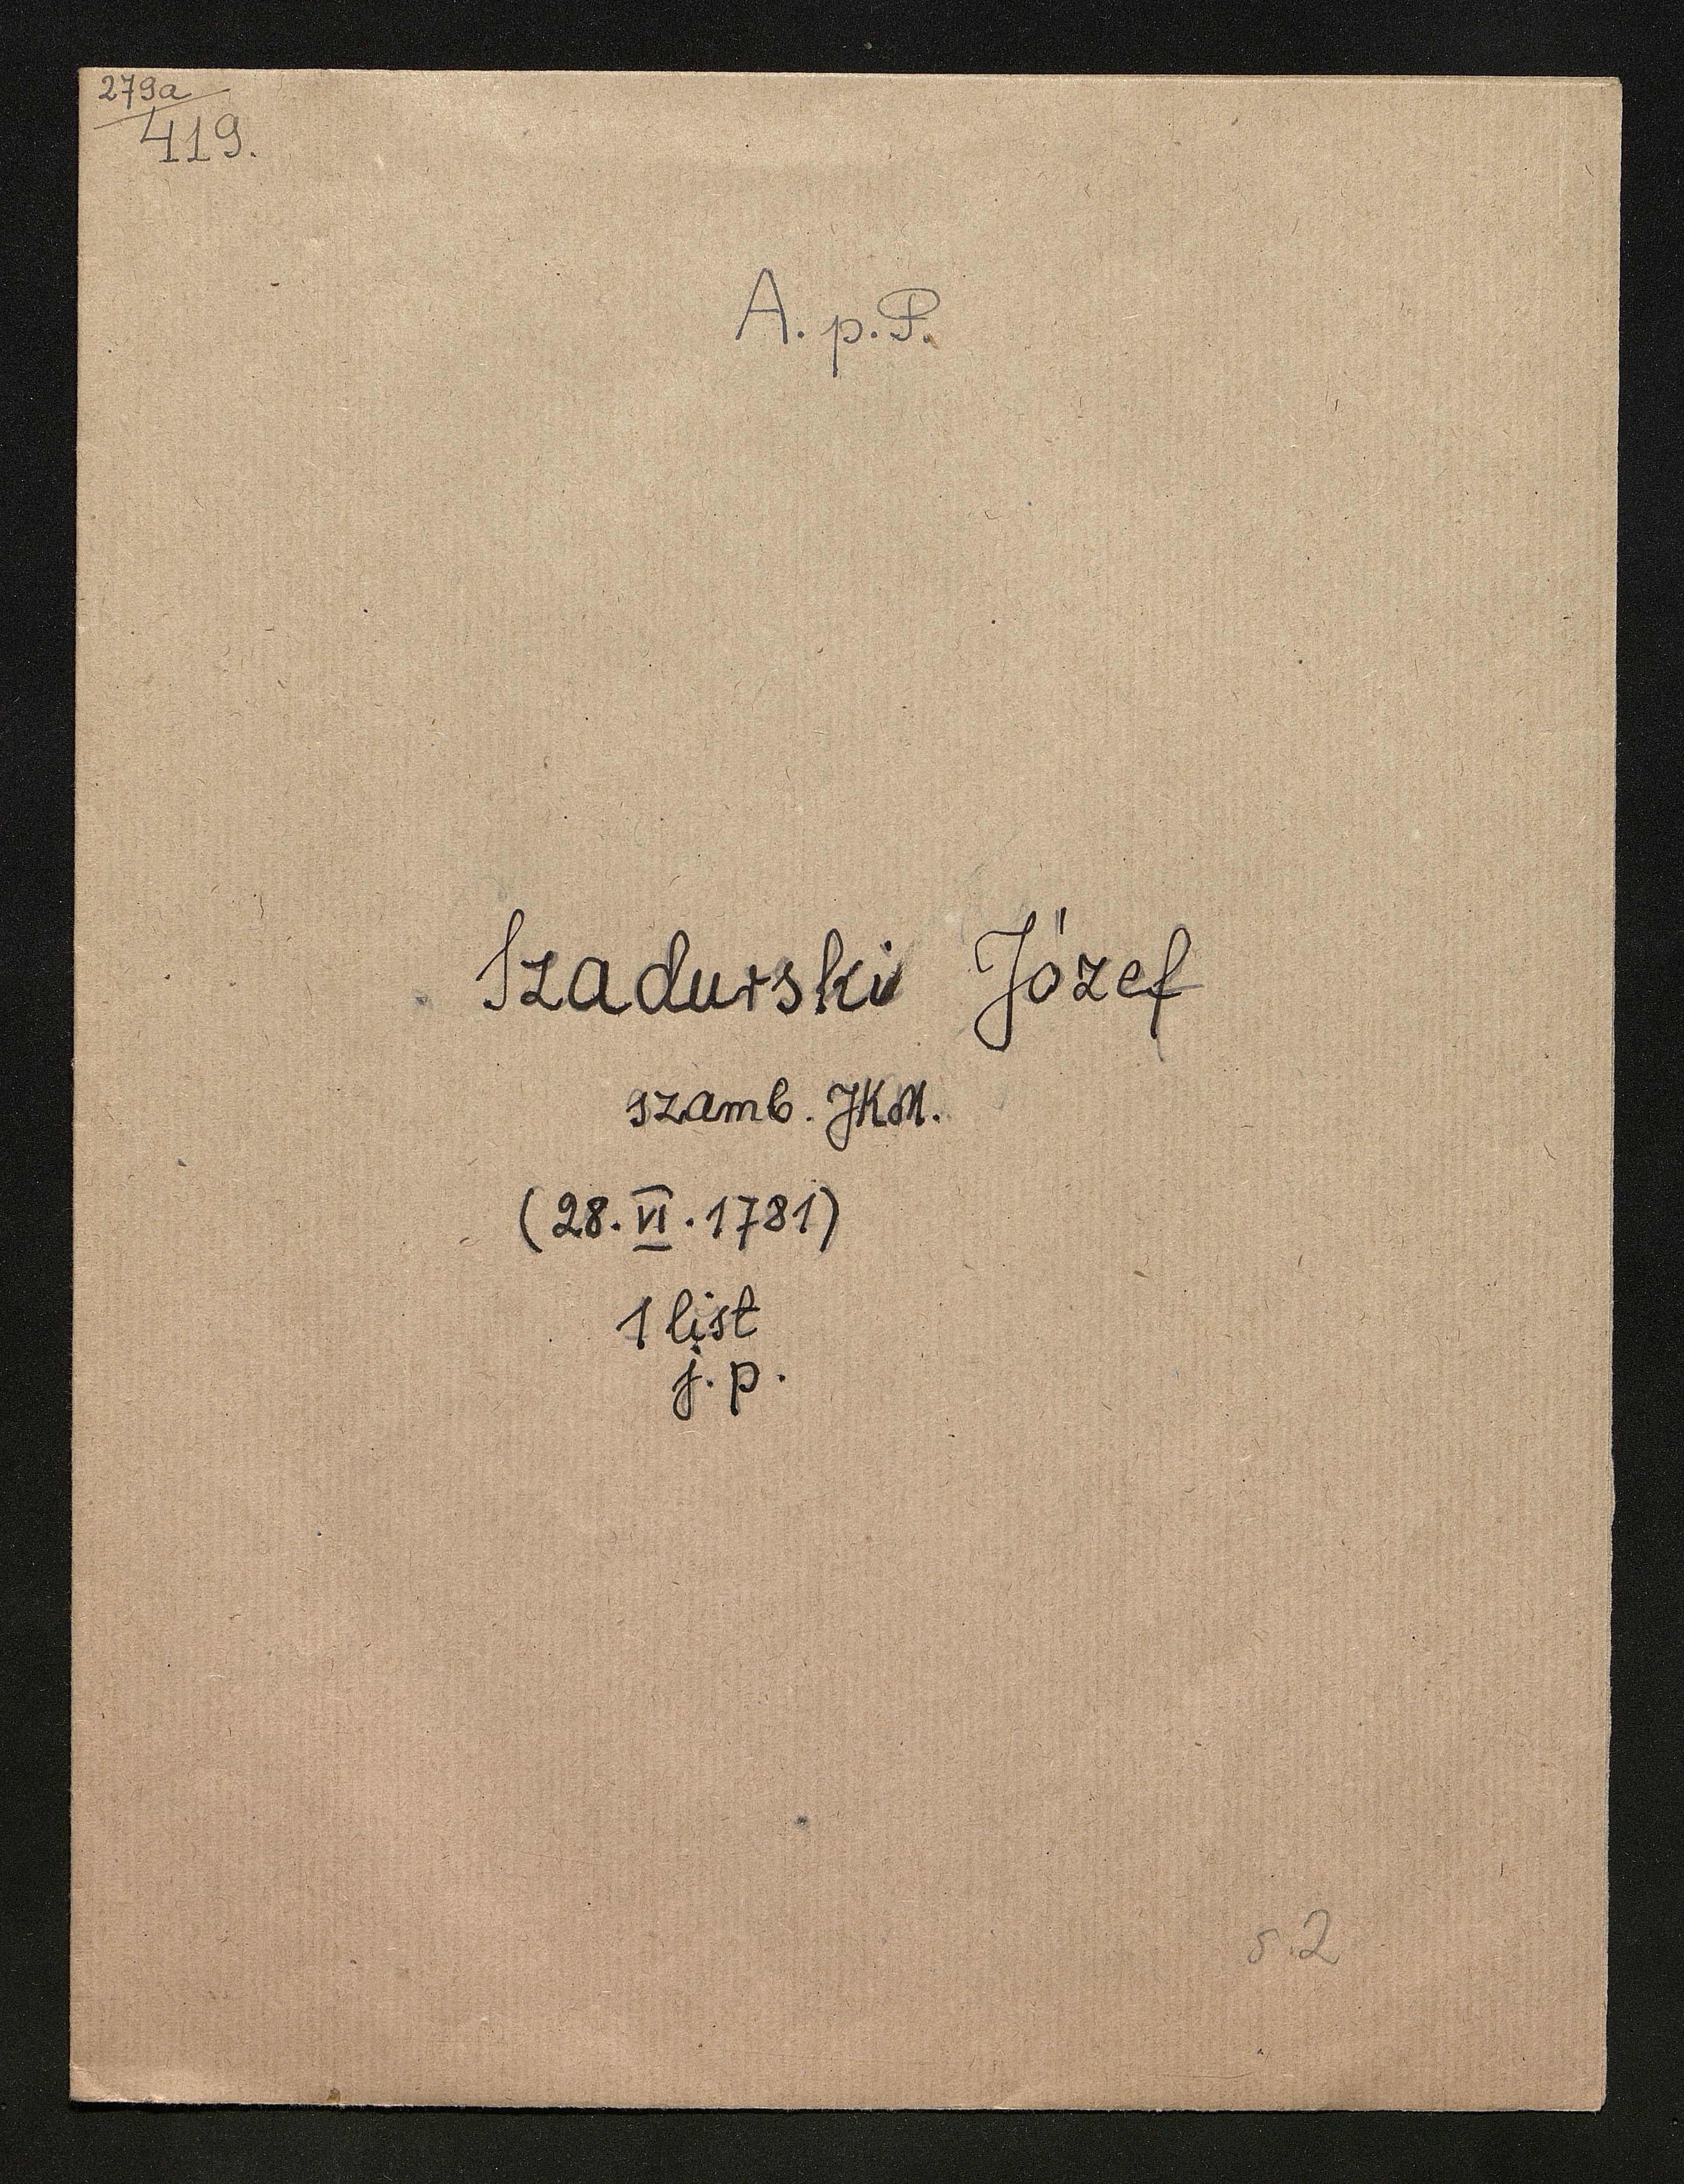 279a
419.
A. p. P.
Szadurski Józef
szamb. JKM.
(28. VI. 1781)
1 list
j. p.
s. 2